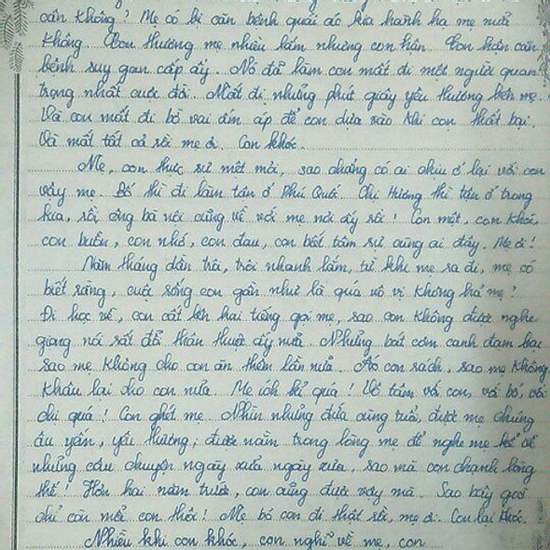 cần không? Mẹ có bị căn bệnh quái ác kia hành hạ mẹ nữa
không. Con thương mẹ nhiều lắm nhưng con hận. Con hận căn
bệnh suy gan cấp ấy. Nó đã làm con mất đi một người quan
trọng nhất cuộc đời. Mất đi những phút giây yêu thương bên mẹ.
Và con mất đi bờ vai ấm áp để con dựa vào khi con thất bại.
Và mất tất cả rồi mẹ ơi. Con khóc.
Mẹ, con thực sự mệt mỏi, sao chẳng có ai chịu ở lại với con
vậy mẹ. Bố thì đi làm tận ở Phú Quốc. Chị Hương thì tận ở trong
kia, rồi ông bà nội cũng về với mẹ nơi ấy rồi! Con mệt, con khóc,
con buồn, con nhớ, con đau, con biết tâm sự cùng ai đây. Mẹ ơi!
Năm tháng dần trôi, trôi nhanh lắm, từ khi mẹ ra đi, mẹ có
biết rằng, cuộc sống con gần như là quá vô vị không hả mẹ?
Đi học về, con cất lên hai tiếng gọi mẹ, sao con không được nghe
giọng nói rất đỗi thân thuộc ấy nữa. Những bát cơm canh đạm bạc
sao mẹ không cho con ăn thêm lần nữa. Áo con rách, sao mẹ không
khâu lại cho con nữa. Mẹ ích kỉ quá! Vô tâm với con, với bố, với
chị quá! Con ghét mẹ. Nhìn những đứa cùng tuổi, được mẹ chúng
âu yếm, yêu thương, được nằm trong lòng mẹ để nghe mẹ kể về
những câu chuyện ngày xửa ngày xưa, sao mà con chạnh lòng
thế! Hơn hai năm trước, con cũng được vậy mà. Sao bây giờ
chỉ còn mỗi con thôi! Mẹ bỏ con đi thật rồi, mẹ ơi. Con lại khóc.
Nhiều khi con khóc, con nghĩ về mẹ, con